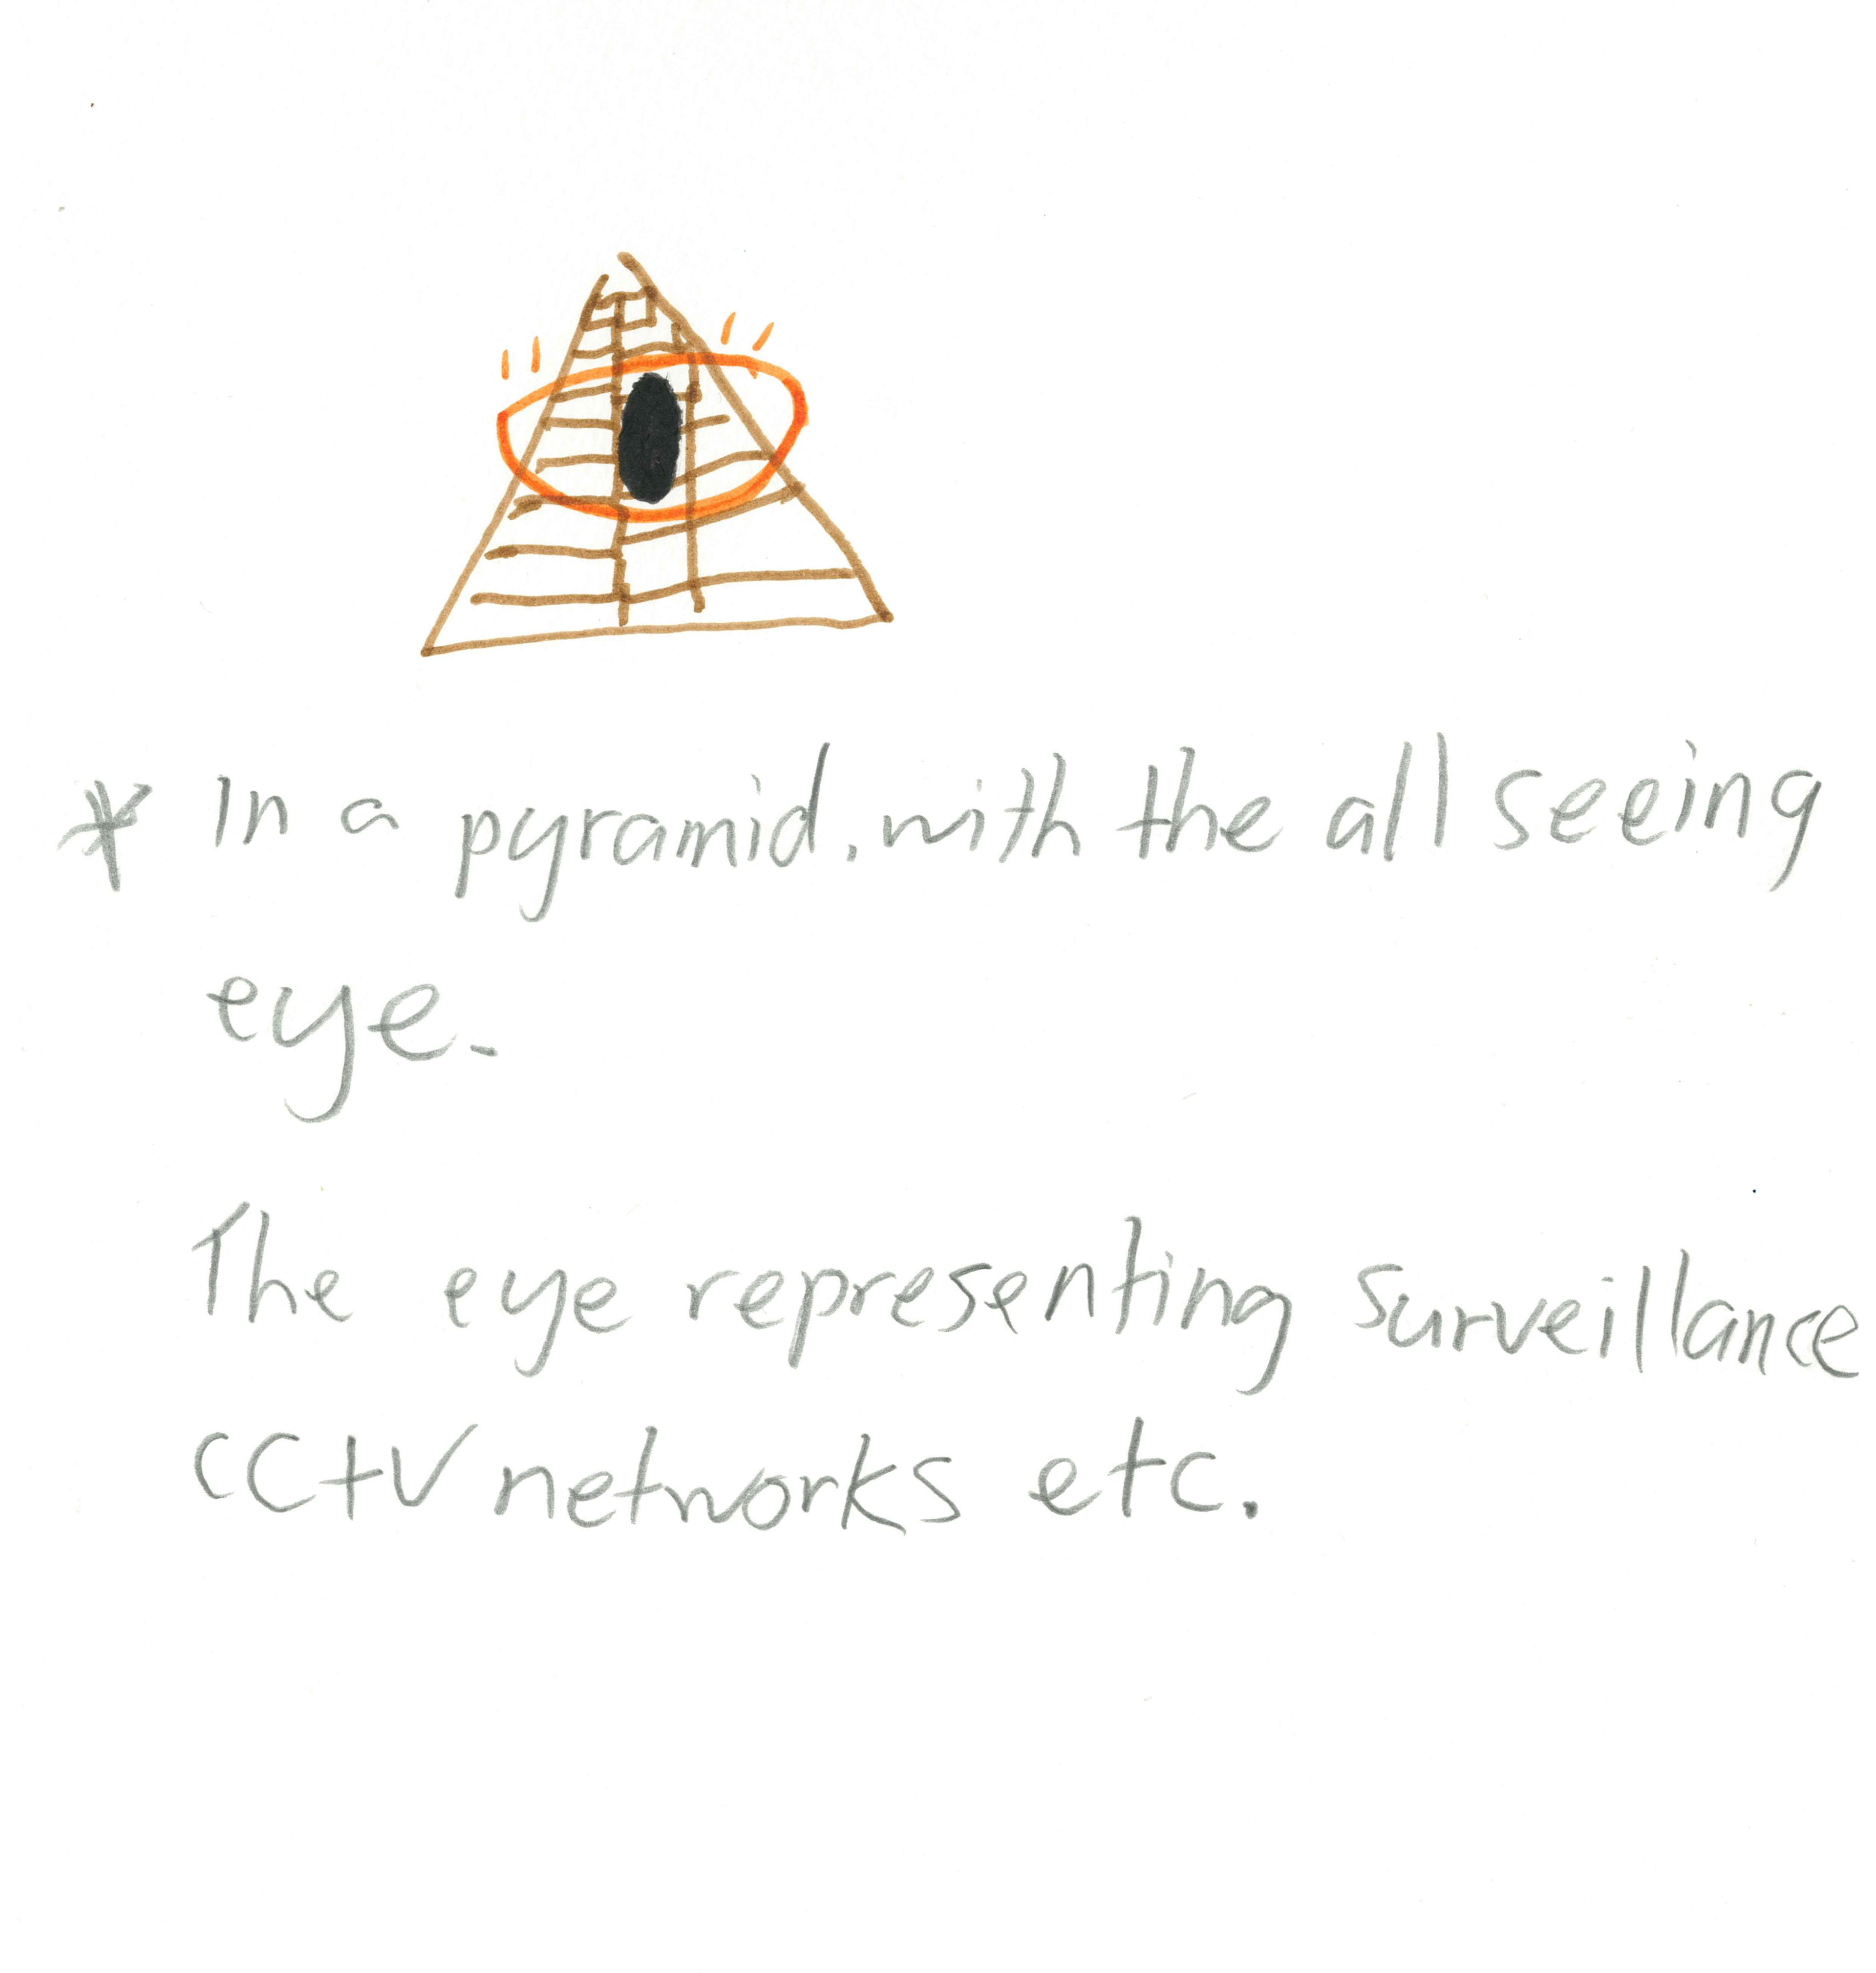 * In a pyramid. with the all seeing
eye.
The eye representing surveillance
CCtV networks etc.